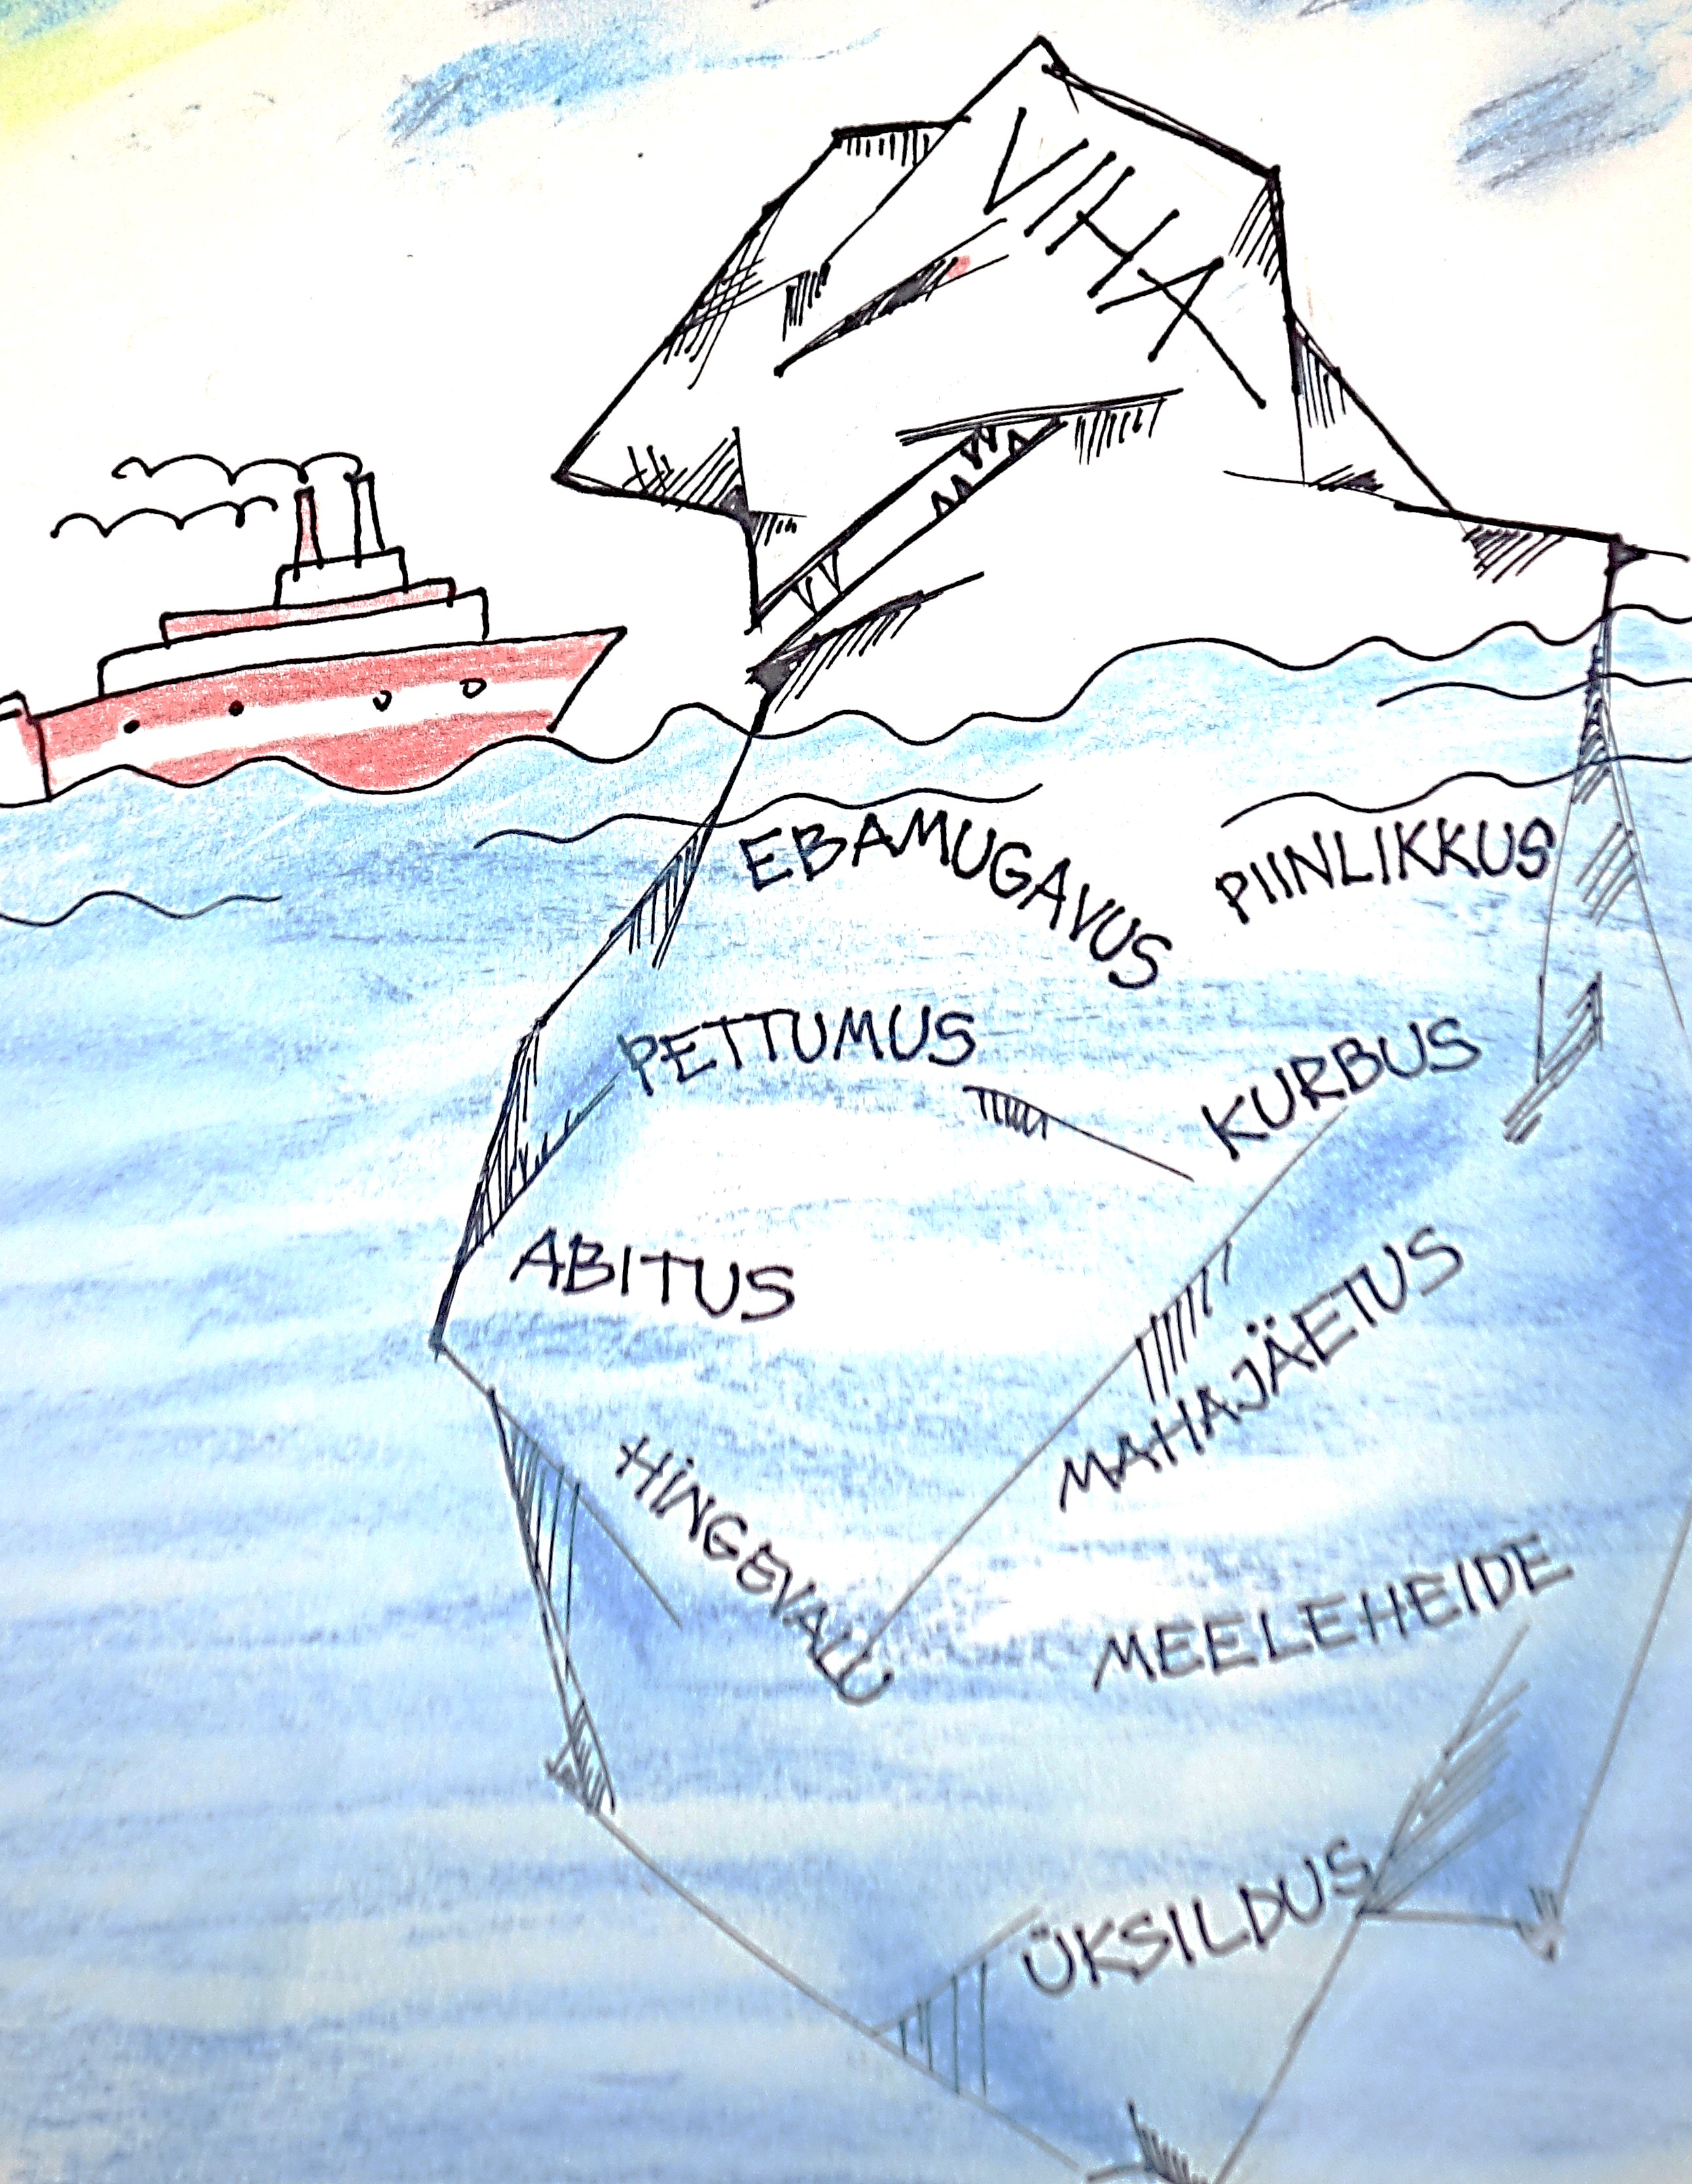 VIHA
EBAMUGAVUS
PIINLIKKUS
PETTUMUS
KURBUS
ABITUS
MAHAJÄETUS
HINGEVALU
MEELEHEIDE
ÜKSILDUS